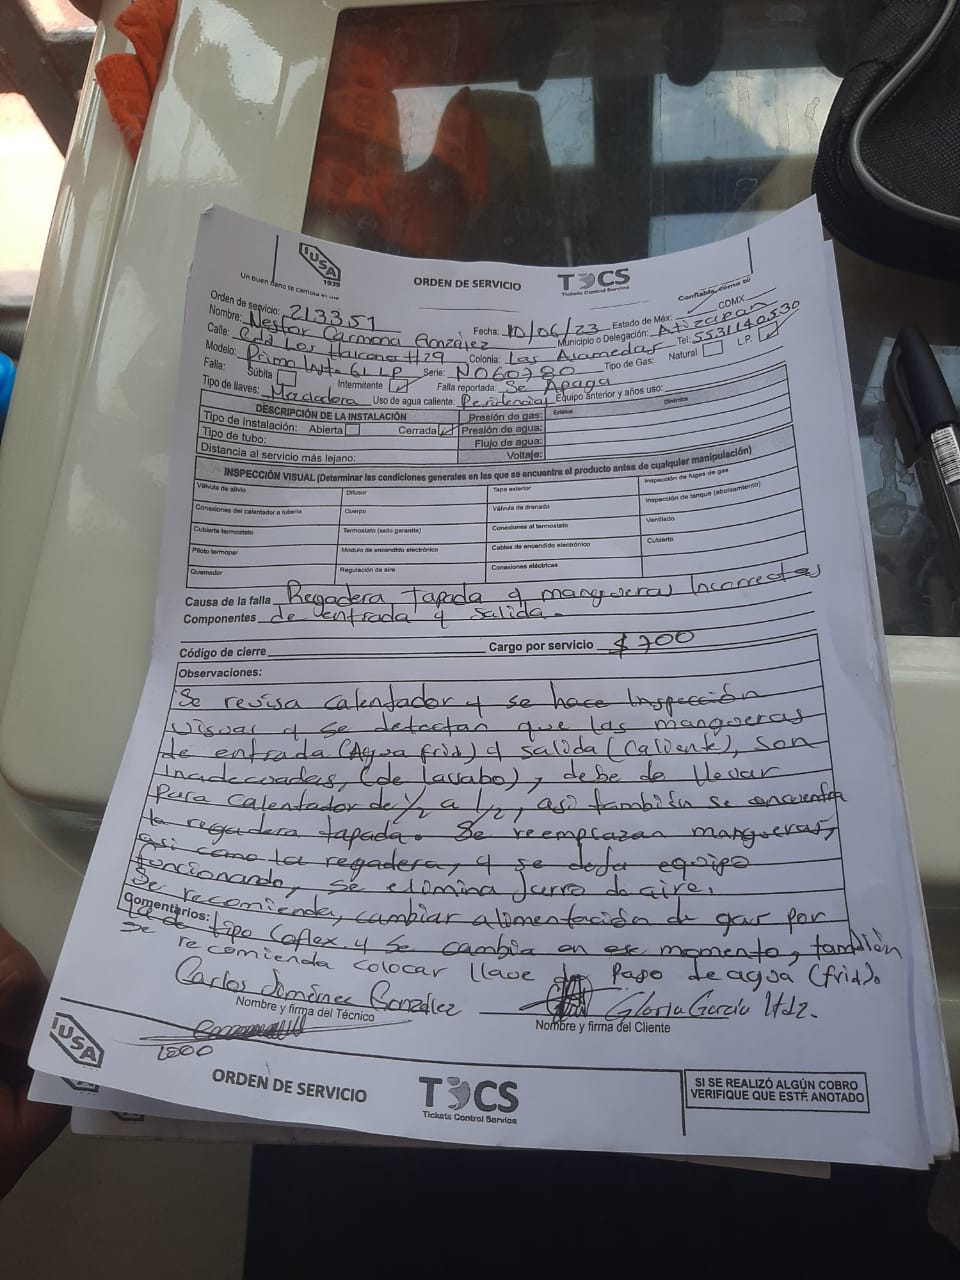 IUSA
1939
Un buen baño te cambia el día
ORDEN DE SERVICIO
TOCS
Tickets Control Service
Confiable, como tú
Orden de servicio: 213351
Fecha: 10/06/23 Estado de Méx: CDMX
Nombre: Nestor Carmona González Municipio o Delegación: Atizapan
Calle: Cda Los Halcones #29 Colonia: Las Alamedas Tel: 5531140530
Modelo: Primo Inst. 6L LP Serie: N060780 Tipo de Gas: Natural L.P.
Falla: Súbita Intermitente Falla reportada: Se Apaga
Tipo de llaves: Mezcladora Uso de agua caliente: Residencial Equipo anterior y años uso:
DESCRIPCIÓN DE LA INSTALACIÓN Presión de gas: Estático Dinámico
Tipo de instalación: Abierta Cerrada Presión de agua:
Tipo de tubo: Flujo de agua:
Distancia al servicio más lejano: Voltaje:
INSPECCIÓN VISUAL (Determinar las condiciones generales en las que se encuentra el producto antes de cualquier manipulación)
Válvula de alivio Difusor Tapa exterior Inspección de fugas de gas
Conexiones del calentador a tubería Cuerpo Válvula de drenado Inspección de tanque (abolsamiento)
Cubierta termostato Termostato (sello garantía) Conexiones al termostato Ventilado
Piloto termopar Módulo de encendido electrónico Cables de encendido electrónico Cubierto
Quemador Regulación de aire Conexiones eléctricas
Causa de la falla Regadera tapada y mangueras Incorrectas
Componentes de entrada y salida.
Código de cierre Cargo por servicio $ 700
Observaciones:
Se revisa calentador y se hace Inspección
visual y se detectan que las mangueras
de entrada (Agua fria) y salida (Caliente), son
Inadecuadas, (de Lavabo), debe de llevar
para calentador de 1/2 a 1/2, así también se encuentra
la regadera tapada. Se reemplazan mangueras,
así como la regadera, y se deja equipo
funcionando, se elimina Jarro de aire.
Se recomienda, cambiar alimentación de gas por
Comentarios: tipo Coflex. y se cambia en ese momento, también
se recomienda colocar llave de paso de agua (fria).
Carlos Jiménez González
Gloria García Htdz.
Nombre y firma del Técnico
Nombre y firma del Cliente
1800
IUSA
ORDEN DE SERVICIO
TOCS
Tickets Control Service
SI SE REALIZÓ ALGÚN COBRO
VERIFIQUE QUE ESTÉ ANOTADO